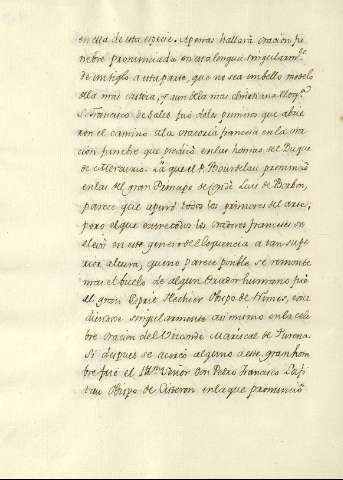 en ella de esta especie. Apenas hallará oración fu
nebre pronunciada en esta lengua singularmte
de un siglo a esta parte, que no sea un bello modelo
de la más castiza, y aun de la más christiana eloqa
S. Francisco de Sales fue de los primeros que abrie
ron el camino a la oratoria francesa en la ora
ción funebre que predicó en las honras del Duque
de Mercurio. La que el P. Bourdalue pronunció
en las del gran Principe de Condé Luis de Borbon,
parece que apuró todos los primores del arte;
pero el que entre todos los oradores franceses
elevó en este genero de eloquencia a tan supe
rior altura, que no parece posible se remonte
mas el buelo de algun orador humano, fue
el gran Esprit Flechier Obispo de Nimes, exce
diendose singularmente asi mismo en la céle
bre oración del Vizconde Mariscal de Turena.
Si despues se acercó alguno a este gran hom
bre fue el Señor Don Pedro Francisco Lafi
tau Obispo de Sisteron en la que pronunció